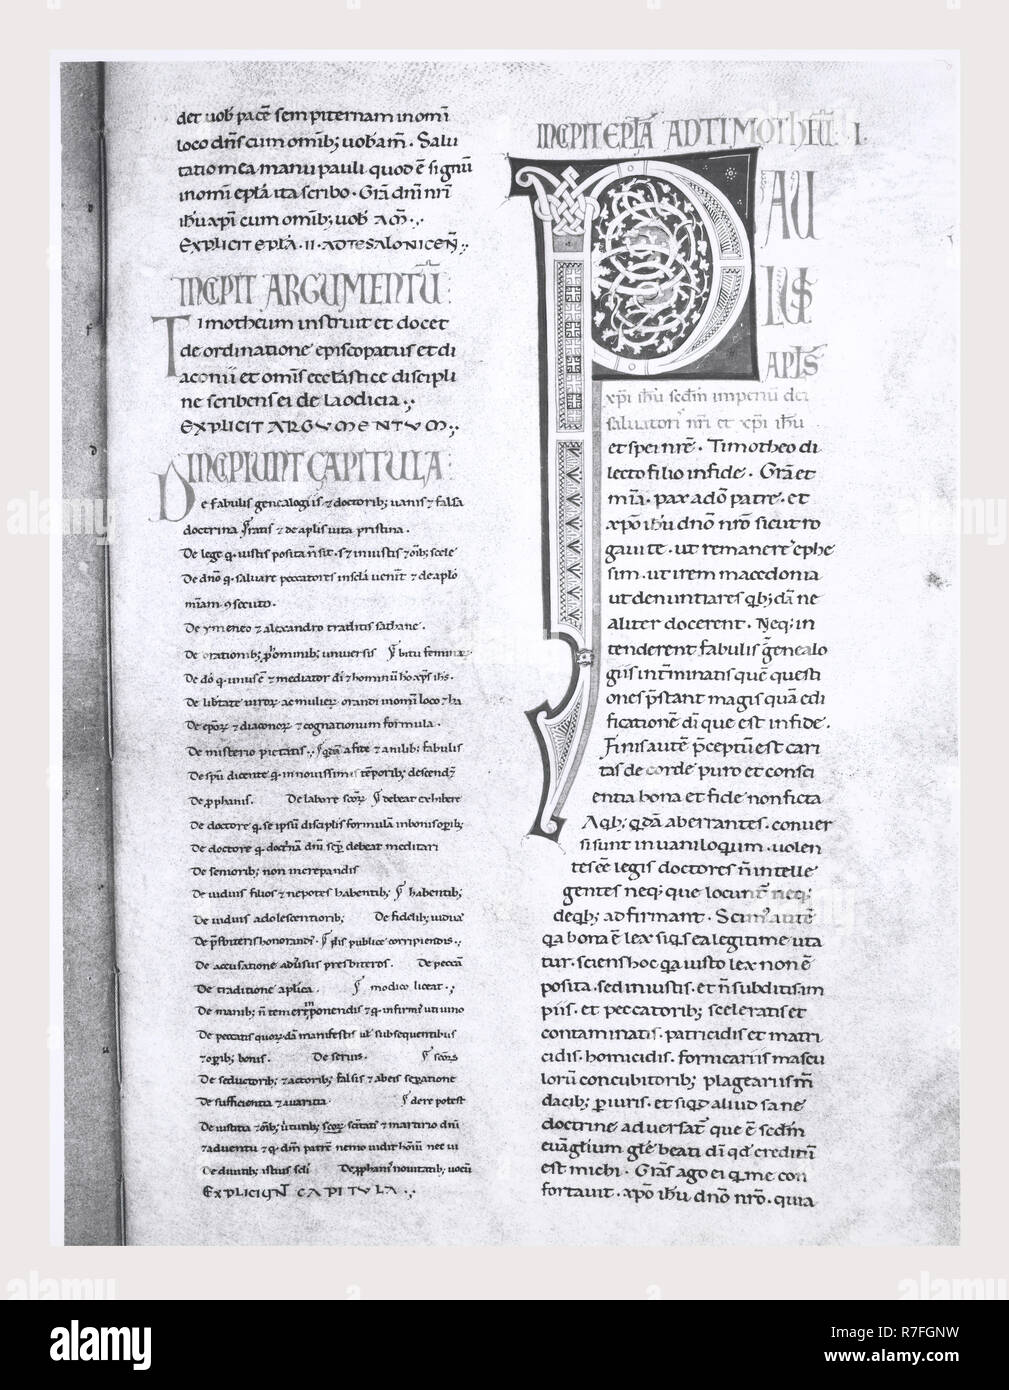 det uob pacē sempiternam inomī
loco dn̄s cum omīb; uobᵃm̄. Salu
tatio mea manu pauli quod ē signū
inomī eplā ita scribo. Grā dnī nrī
ihū xp̄i cum omīb; uob Am̄.
Explicit eplā. II. ad tesalonicen̄.
INCIPIT ARGUMENTŪ:
Timotheum instruit et docet
de ordinatione episcopatus et di
aconii et omīs ecclāstice discipli
ne scribens ei de laodicia.
EXPLICIT ARGUMENTUM.
INCIPIUNT CAPITULA:
De fabulis genealogiis ⁊ doctorib; uanis ⁊ falsa
doctrina ⁊ de aplīs uita pristina.
De lege q. iustis posita n̄ sit. s; iniustis ⁊ oīb; scele
De dnō q. saluare peccatores
mīam secuto.
De ymeneo ⁊ alexandro traditis sathane.
De orationib; pro ominib; uniuersis bitu feminaꝝ
De dō q. unus ē ⁊ mediator dī ⁊ hominū
orandi inomī loco
⁊ diaconoꝝ ⁊ cognationum formula.
De misterio pietatis. fabulis
De spū dicente q. in nouissimis tēporib; descendꝫ
De pphanis. De labore scōꝝ debeat exhibere
De doctore q. se ipsū disciplīs formulā in bonis opib;
De doctore q. doctna debeat meditari
De seniorib; non increpandis
De uiduis filios ⁊ nepotes habentib; habentib;
De uiduis adolescentiorib; De fidelib; uiduas
De p̄sbiteris honorandis publice corripiendis.
De accusatione aduersus presbiteros. De peccā
De traditione aplica. modico liceat.
De manib; n̄ temere imponendis ⁊ q. infirmi uti uino
De peccatis quorūdā manifestis uel subsequentibus
⁊ opib; bonis. De seruis.
De seductorib; ⁊ auctorib; falsis ⁊ ab eis sepatione
De sufficientia ⁊ auaritia. dere potest
De iustitia ⁊ martirio dnī
⁊ aduentu ⁊ q. dm̄ patrē nemo uidit
De diuitib; De pphanis nouitatib; uocū
EXPLICIUNT CAPITULA.
INCIPIT EPLĀ AD TIMOTHEŪ. I.
PAU
LUS
APLS̄
xp̄i ihū scdm̄ imperiū dei
saluatoris nrī et xp̄i ihū
et spei nrē. Timotheo di
lecto filio in fide. Grā et
mīa. pax a dō patre. et
xpō ihū dnō nrō sicut ro
gaui te. ut remaneres ephe
si m. ut irem macedonia
ut denuntiares qbdā ne
aliter docerent. Neq; in
tenderent fabulis ⁊ genealo
giis intm̄inatis quē questi
ones p̄stant magis quā edi
ficationē dī que est in fide.
Finis autē p̄ceptū est cari
tas de corde puro et consci
entia bona et fide non ficta
A qb; qdā aberrantes. conuer
si sunt in uaniloqum. uolen
tes eē legis doctores n̄ intelle
gentes neq; que locunt̄ neq;
de qb; adfirmant. Scimus autē
qa bona ē lex siqs ea legitime uta
tur. sciens hoc qa iusto lex non ē
posita. sed iniustis. et n̄ subditis im
piis. et peccatorib; sceleratis et
contaminatis. patricidis et matri
cidis. homicidis. fornicariis mascu
lorū concubitorib; plagearius m̄
dacib; p iuris. et siqd aliud sane
doctrine aduersat̄ que ē scdm̄
euāglium glē beati dī qd creditū
est michi. Grās ago ei q me con
fortauit. xpō ihū dnō nrō. quia
alamy
Image ID: R7FGNW
www.alamy.com